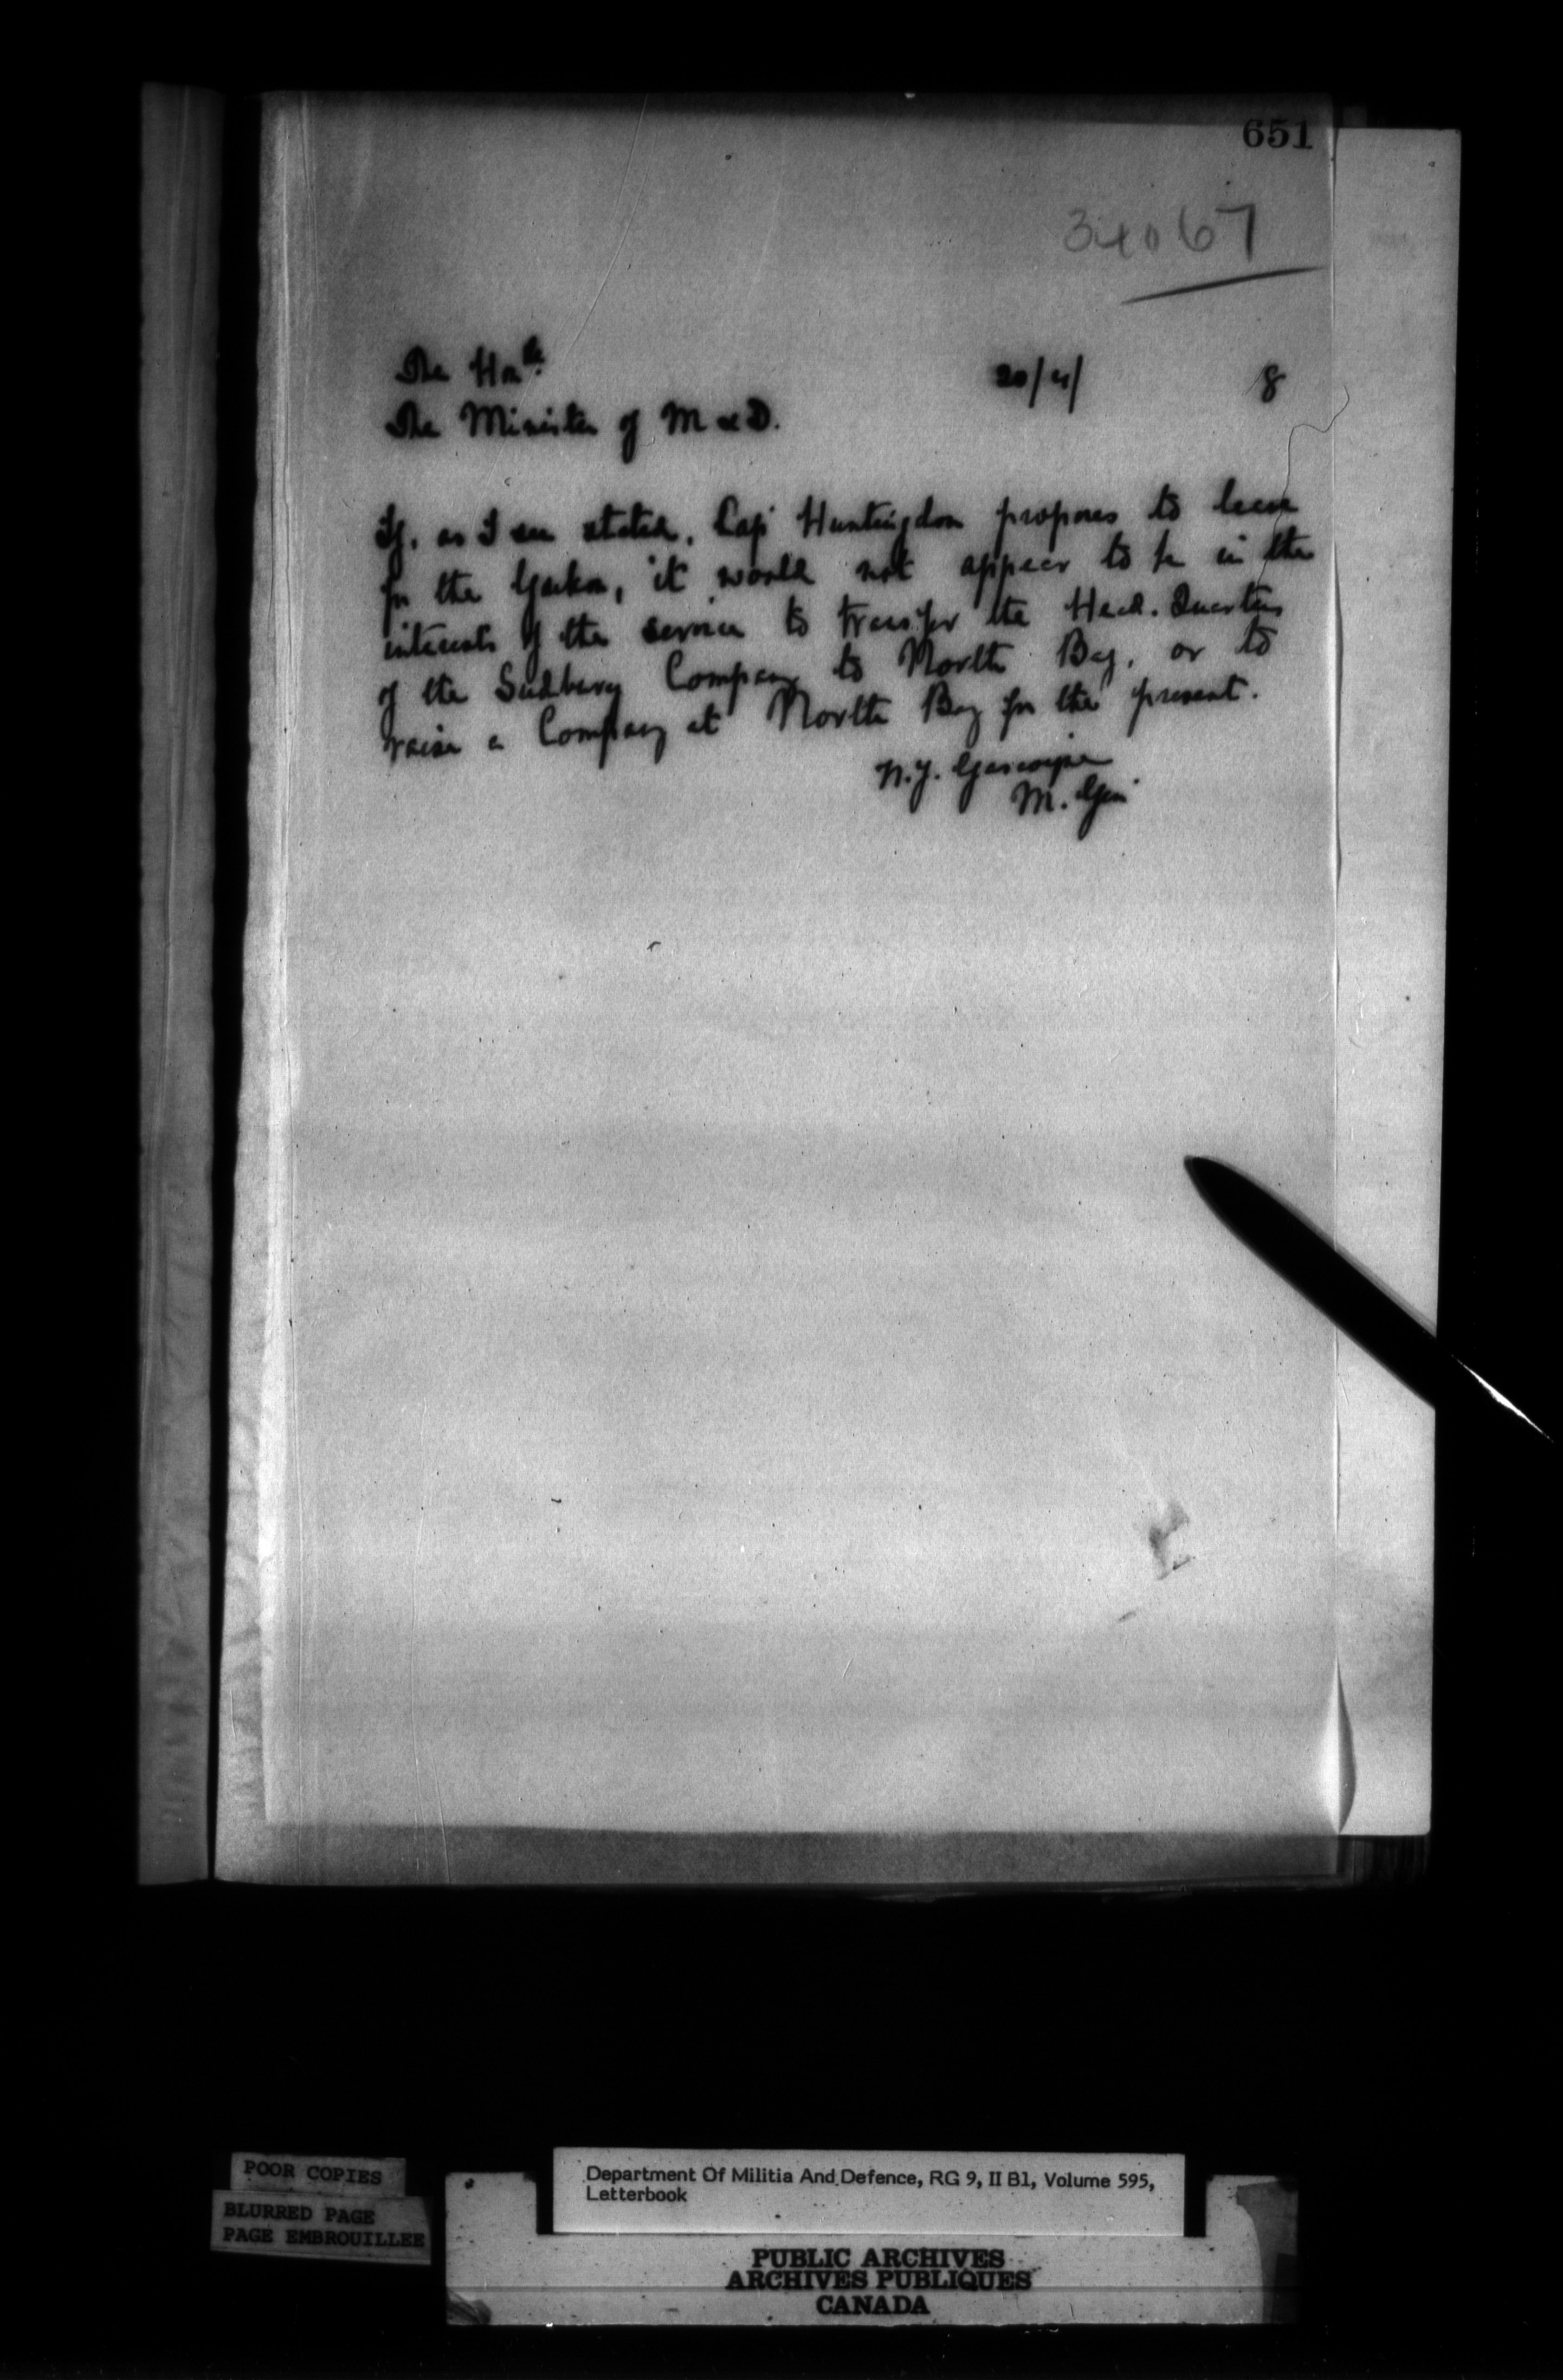 651
34067
The Honble
20/4/ 8
The Minister of M & D.
If, as I see stated, Cap Huntingdon proposes to leave
for the Yukon, it would not appear to be in the
interests of the service to transfer the Head. Quarters
of the Sudbury Company to North Bay, or to
raise a Company at North Bay for the present.
W.J. Gascoigne
M. Gen
POOR COPIES
BLURRED PAGE
PAGE EMBROUILLEE
Department Of Militia And Defence, RG 9, II B1, Volume 595,
Letterbook
PUBLIC ARCHIVES
ARCHIVES PUBLIQUES
CANADA